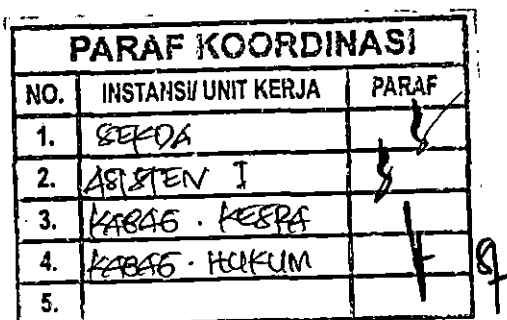 PARAF KOORDINASI
NO. INSTANSI/ UNIT KERJA PARAF
1. SEKDA
2. ASISTEN I
3. KABAG . KESRA
4. KABAG . HUKUM
5.